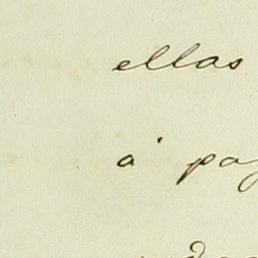 ellas
á pa